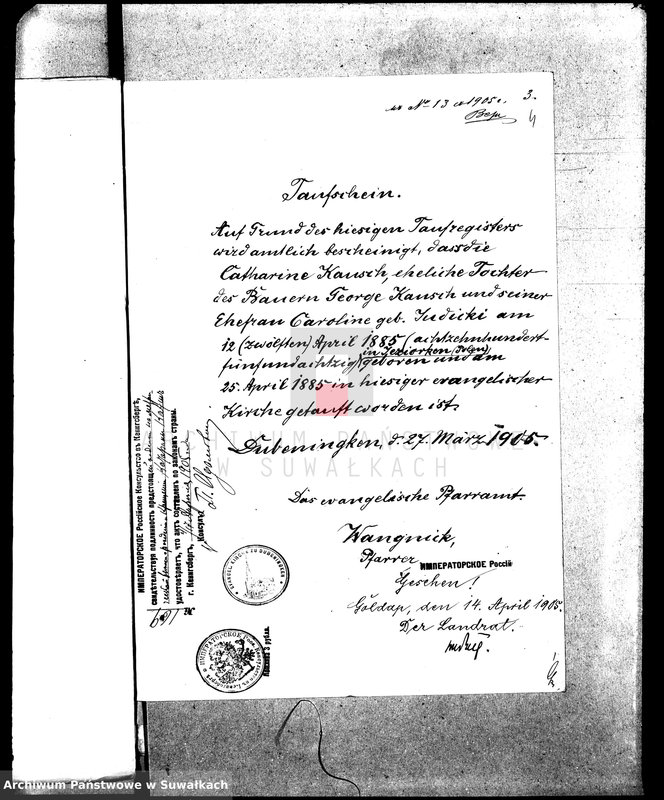 къ № 13 1905 г.
3.
4
Taufschein.
Auf Grund des hiesigen Taufregisters
wird amtlich bescheinigt, dass die
Catharine Kausch, eheliche Tochter
des Bauern George Kausch und seiner
Ehefrau Caroline geb. Judicki am
12 (zwölften) April 1885 (achtzehnhundert-
fünfundachtzig) in Jeziorken (Polen) geboren und am
25. April 1885 in hiesiger evangelischer
Kirche getauft worden ist.
Dubeningken, d. 27. März 1905.
Das evangelische Pfarramt.
Wangnick,
Pfarrer
ИМПЕРАТОРСКОЕ Россій
Gesehen!
Goldap, den 14. April 1905.
Der Landrat.
ИМПЕРАТОРСКОЕ Россійское Консульство въ Кенигсбергѣ,
свидѣтельствуя подлинность предстоящей
удостовѣряетъ, что актъ составленъ по законамъ страны.
г. Кенигсбергъ, 1905
Консулъ
Взыскано 3 рубля.
ARCHIWUM PAŃSTWOWE
W SUWAŁKACH
Archiwum Państwowe w Suwałkach